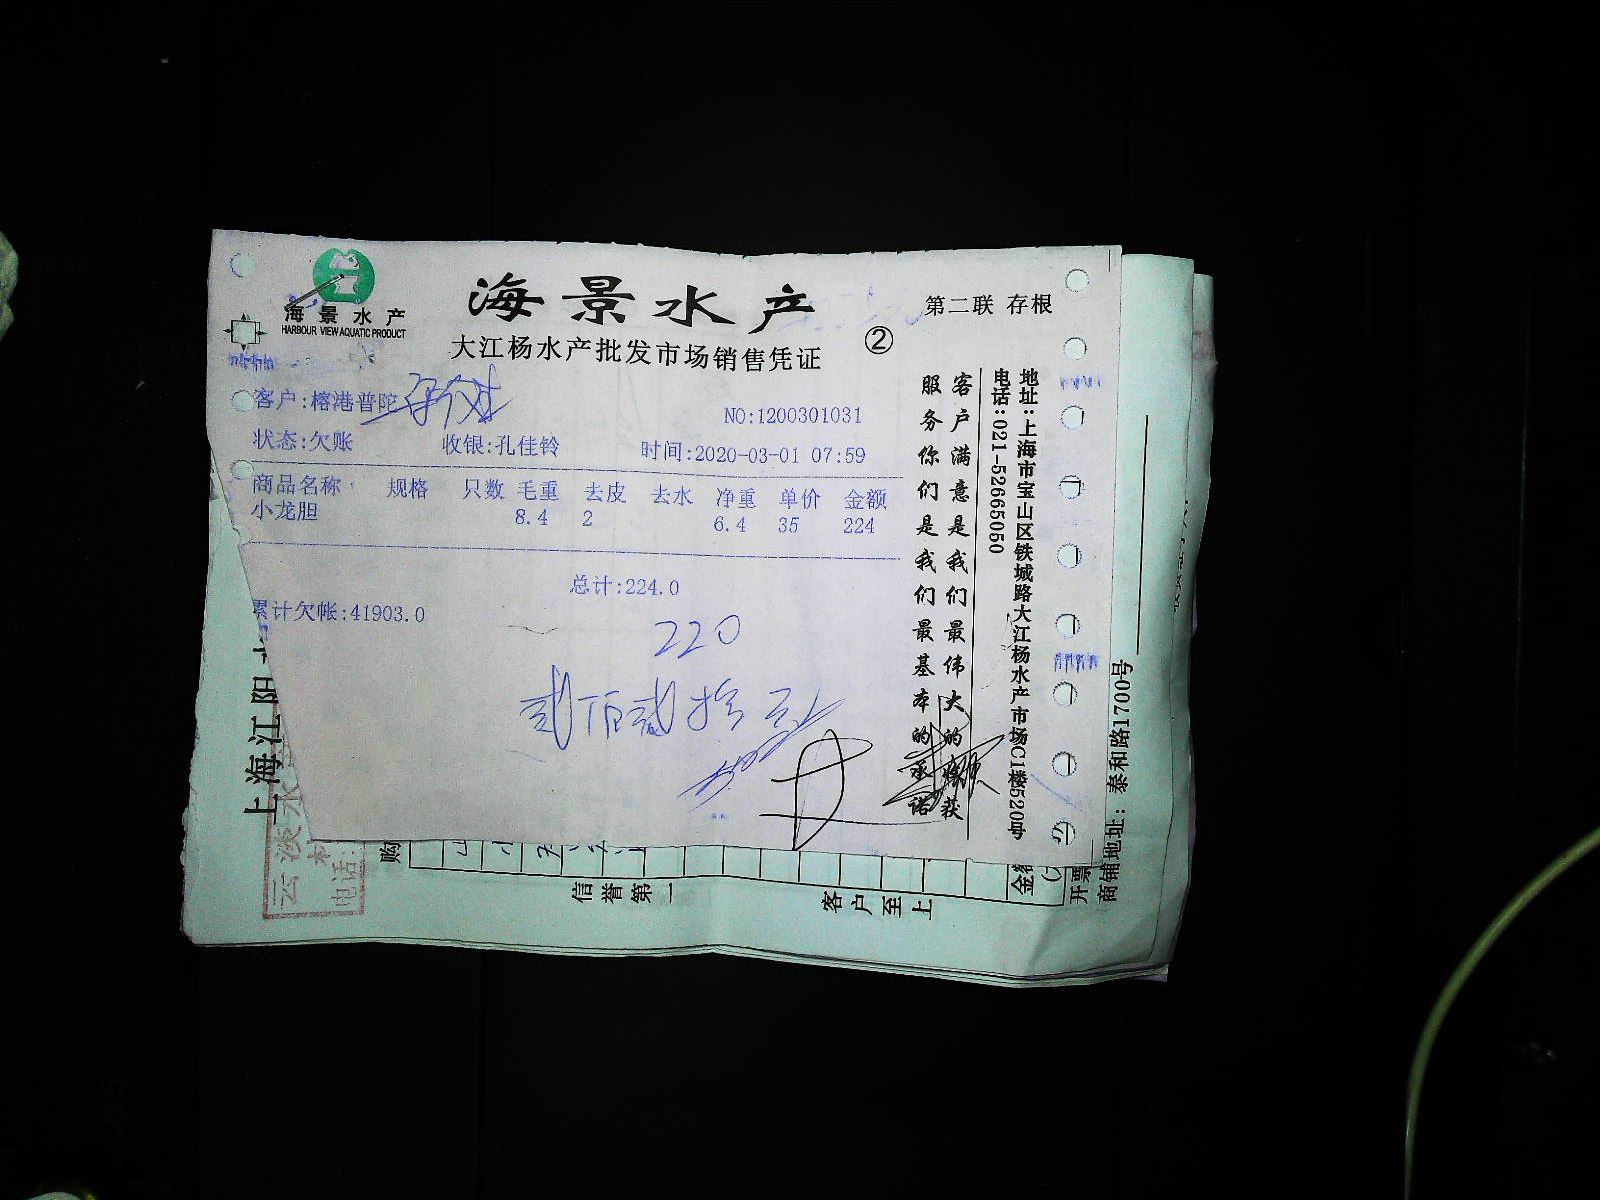 海景水产
HARBOUR VIEW AQUATIC PRODUCT
海景水产
大江杨水产批发市场销售凭证
②
第二联 存根
客户:榕港普陀
NO:1200301031
状态:欠账 收银:孔佳铃 时间:2020-03-01 07:59
商品名称 规格 只数 毛重 去皮 去水 净重 单价 金额
小龙胆 8.4 2 6.4 35 224
总计:224.0
累计欠帐:41903.0
220
贰佰贰拾元
客户满意是我们最伟大的收获
服务你们是我们最基本的承诺
地址:上海市宝山区铁城路大江杨水产市场C1楼520号
电话:021-52665050
上海江阳
购
信誉第一
客户至上
金额
开票
商铺地址: 泰和路1700号
电话: